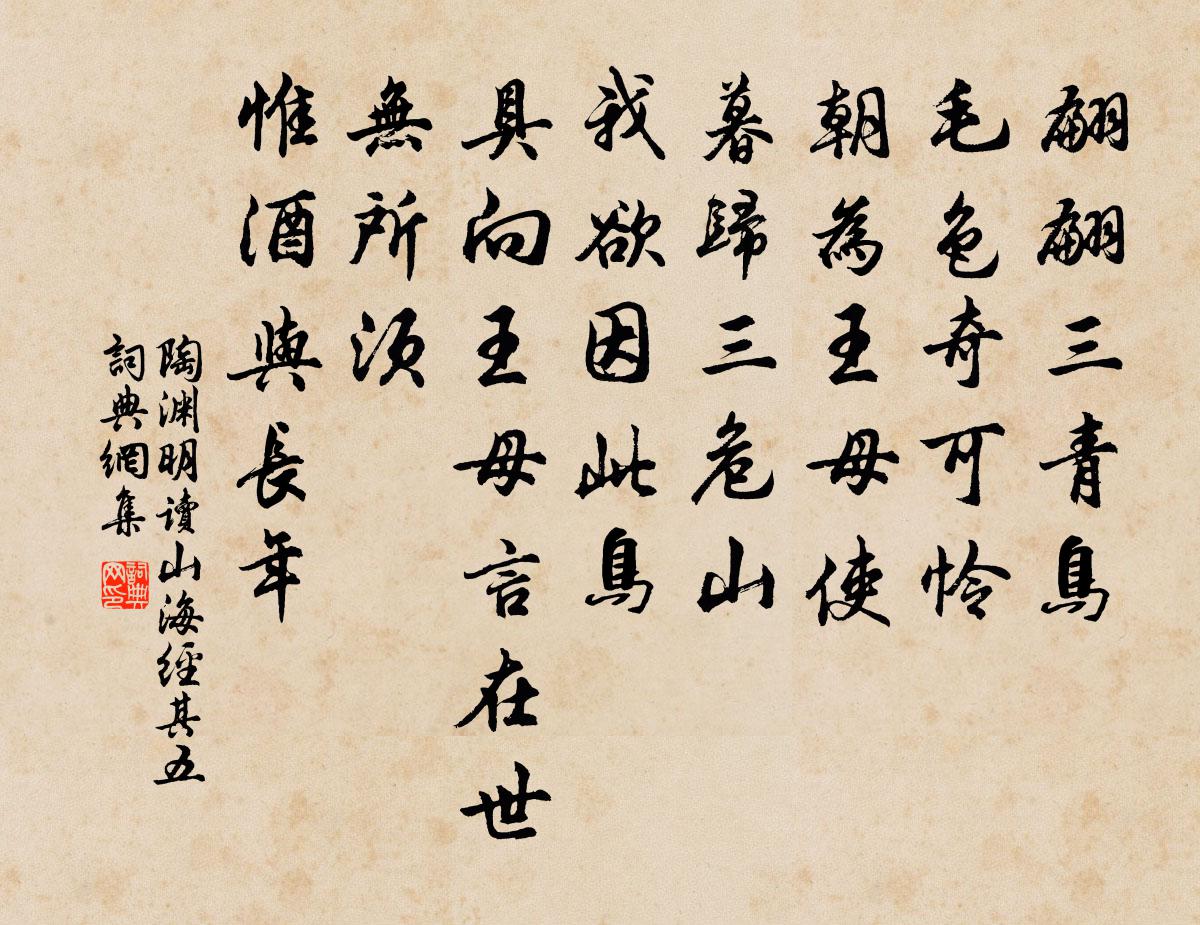 翩翩三青鳥
毛色奇可怜
朝為王母使
暮歸三危山
我欲因此鳥
具向王母言在世
無所須
惟酒與長年
陶渊明讀山海經其五
詞典網集
詞典网印